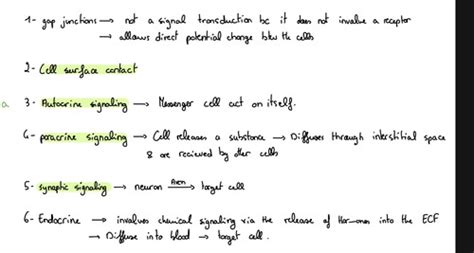 1- gap junctions → not a signal transduction bc it does not involve a receptor
→ allows direct potential change btw the cells
2- Cell surface contact
a 3- Autocrine signaling → Messenger cell act on itself.
4- paracrine signaling → Cell releases a substance → Diffuses through interstitial space
& are recieved by other cells
5- synaptic signaling → neuron Axon → target cell
6- Endocrine → involves chemical signaling via the release of Hormones into the ECF
→ Diffuse into blood → target cell.